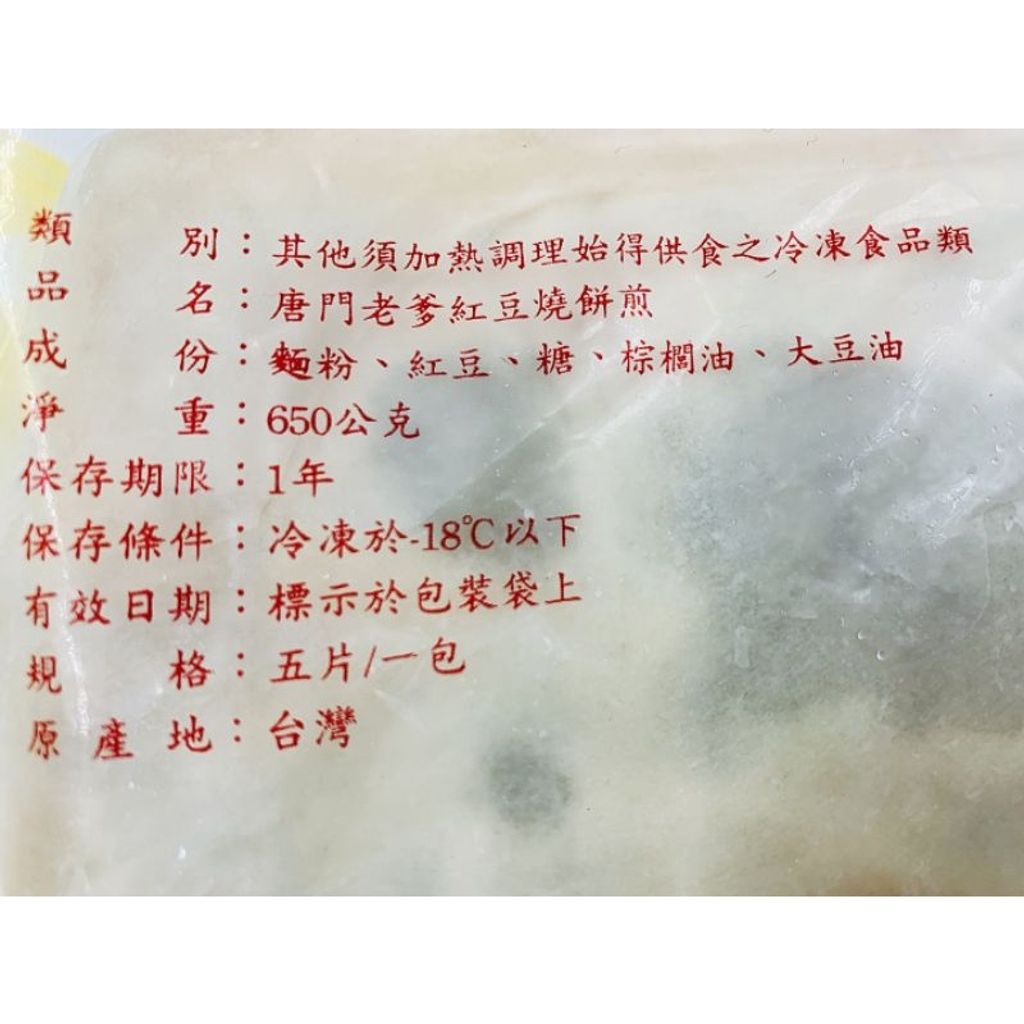 類別：其他須加熱調理始得供食之冷凍食品類
品名：唐門老爹紅豆燒餅煎
成份：麵粉、紅豆、糖、棕櫚油、大豆油
淨重：650公克
保存期限：1年
保存條件：冷凍於-18℃以下
有效日期：標示於包裝袋上
規格：五片/一包
原產地：台灣